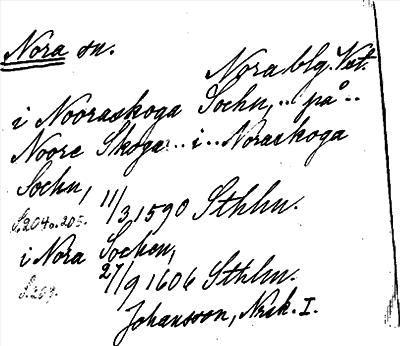 Nora sn.
Nora blg. Vst.
i Nooraskoga Sochn, .. på ..
Noore Skoga .. i .. Noraskoga
Sochn, 11/3 1590 Sthlm.
S. 204 o. 205.
i Nora Sochen,
27/9 1606 Sthlm.
S. 209.
Johansson, Nrsk. I.